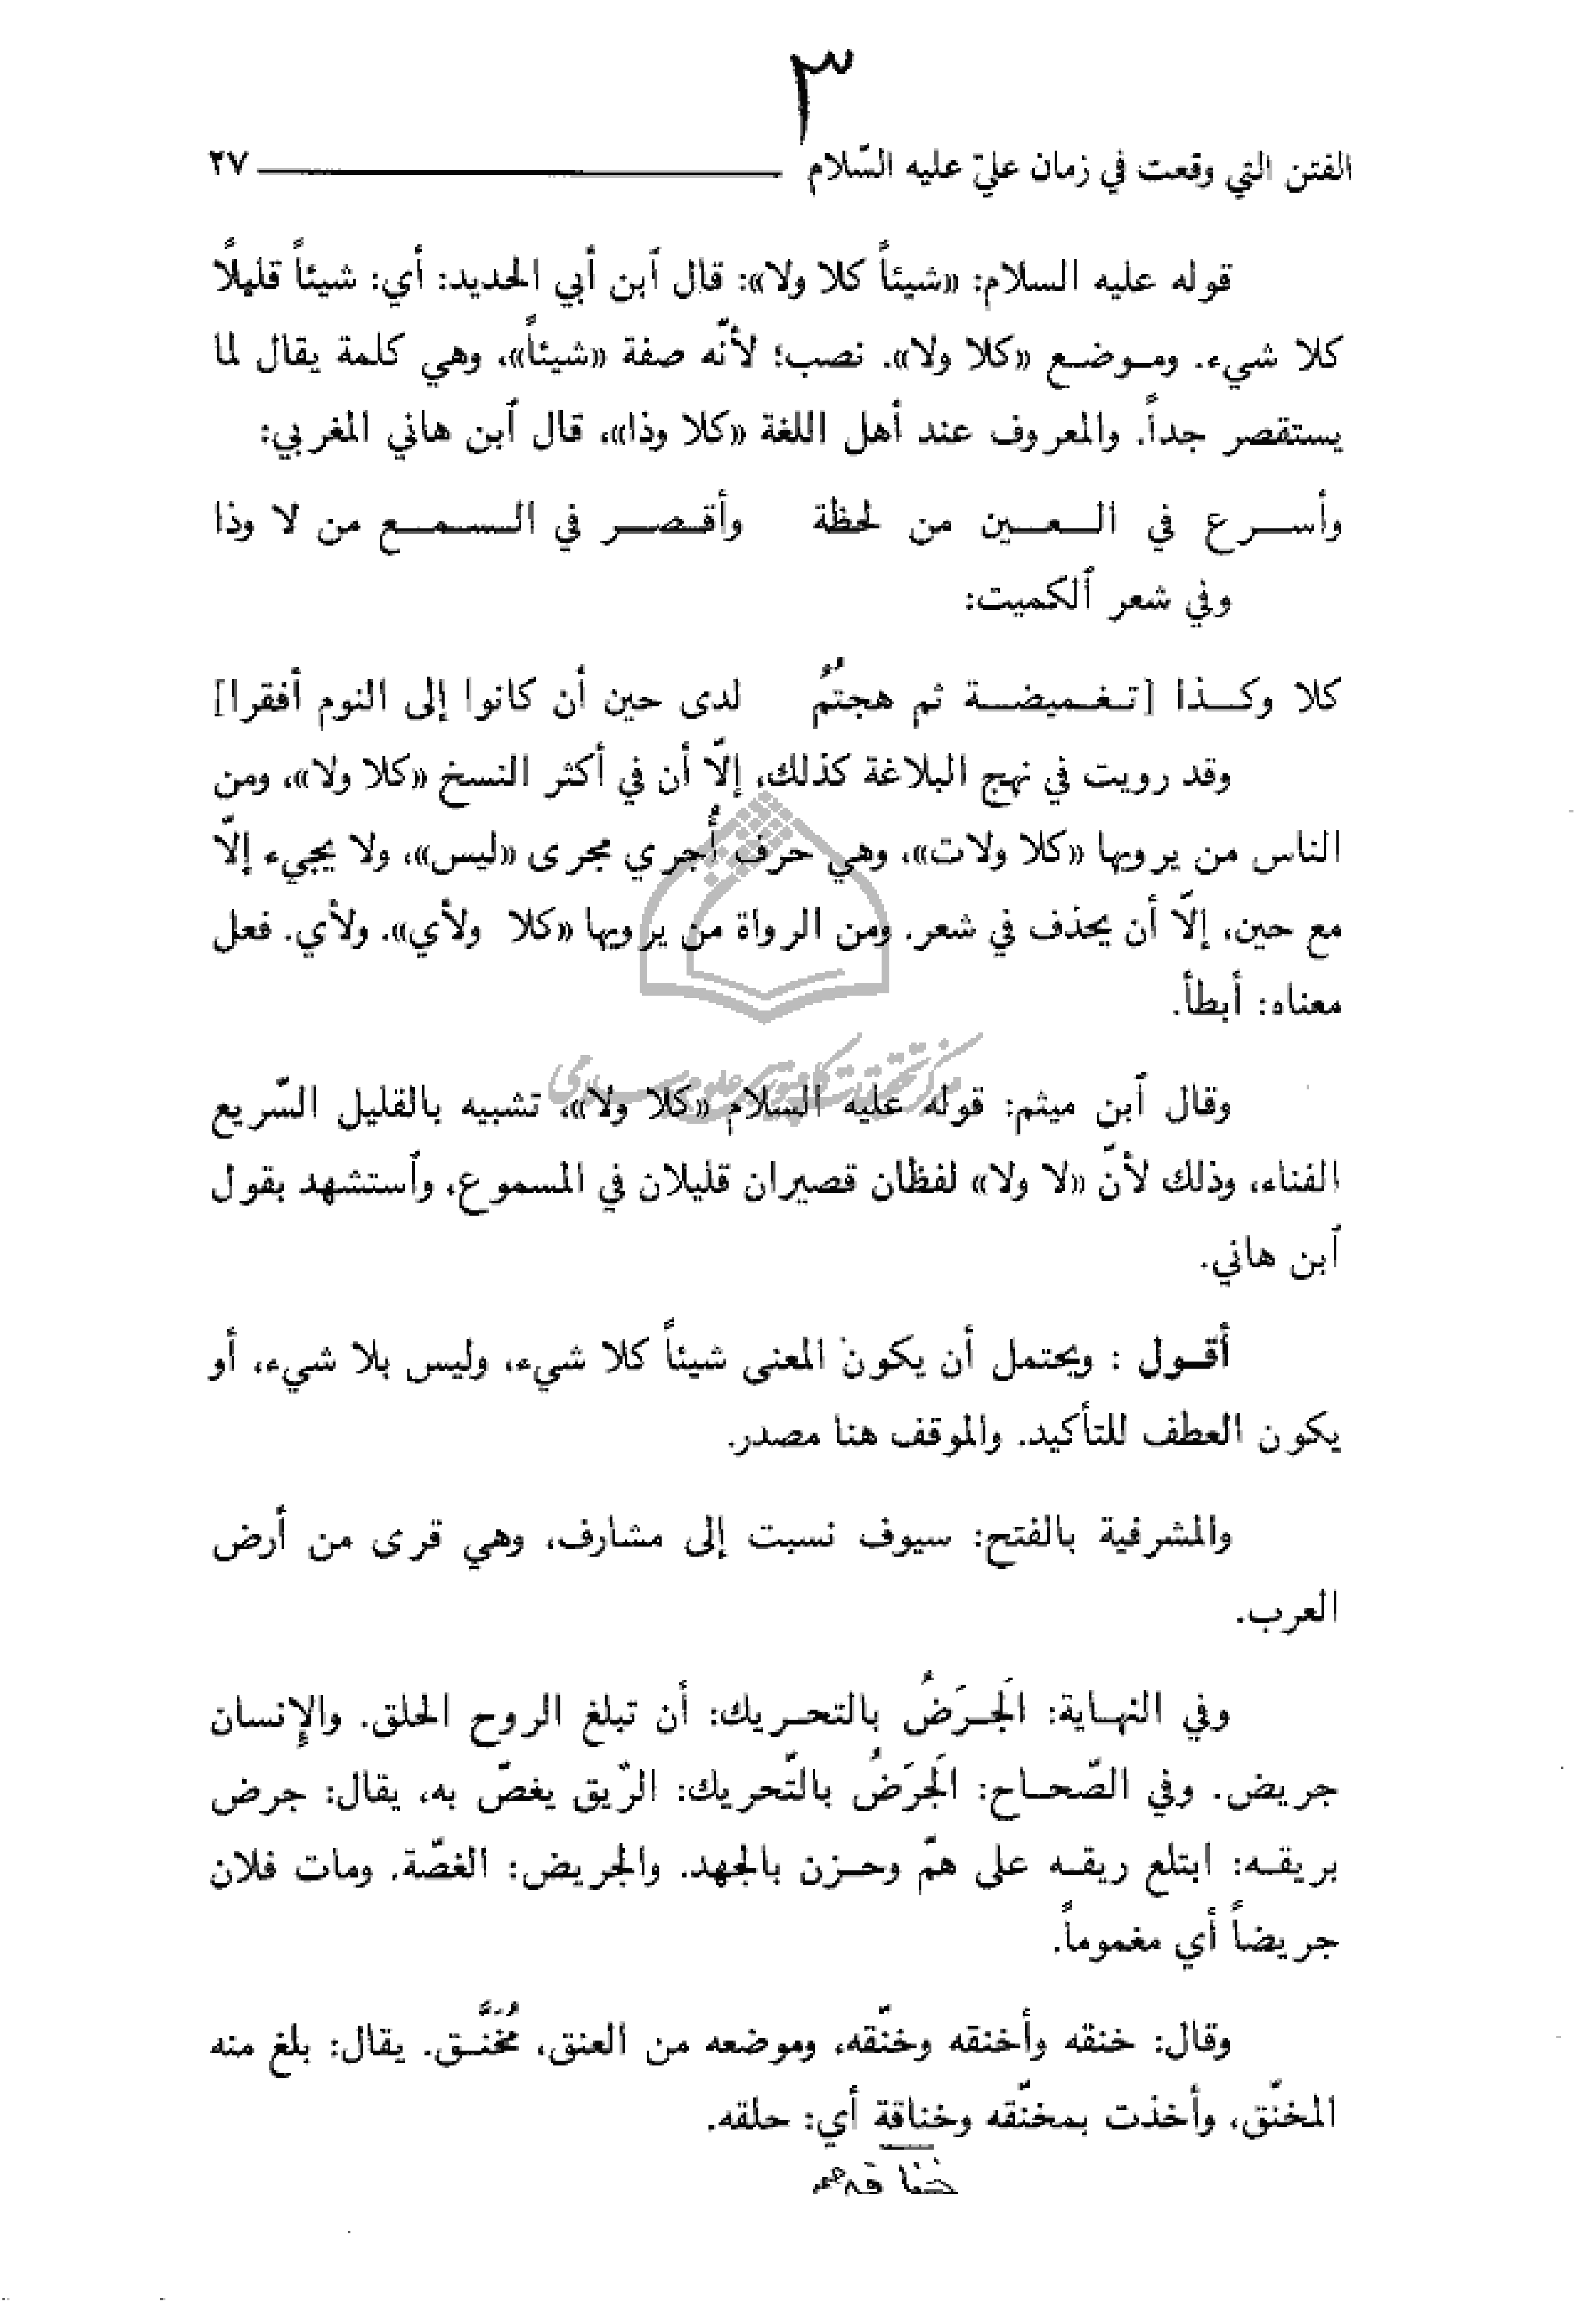 ٣
الفتن التي وقعت في زمان عليّ عليه السّلام ٢٧
قوله عليه السلام: «شيئاً كلا ولا»: قال ٱبن أبي الحديد: أي: شيئاً قليلًا
كلا شيء. ومـوضـع «كلا ولا». نصب؛ لأنّه صفة «شيئاً»، وهي كلمة يقال لما
يستقصر جداً. والمعروف عند أهل اللغة «كلا وذا»، قال ٱبن هاني المغربي:
وأســرع في الــعــين من لحظة وأقـصــر في الــسـمــع من لا وذا
وفي شعر ٱلكميت:
كلا وكــذا [تـغـميضــة ثم هجتُمُ لدى حين أن كانوا إلى النوم أفقرا]
وقد رويت في نهج البلاغة كذلك، إلّا أن في أكثر النسخ «كلا ولا»، ومن
الناس من يرويها «كلا ولات»، وهي حرف أُجري مجرى «ليس»، ولا يجيء إلّا
مع حين، إلّا أن يحذف في شعر. ومن الرواة من يرويها «كلا ولأي». ولأي. فعل
معناه: أبطأ.
مركز تحقيقات كامپيوترى علوم اسلامى
وقال ٱبن ميثم: قوله عليه السلام «كلا ولا»، تشبيه بالقليل السّريع
الفناء، وذلك لأنّ «لا ولا» لفظان قصيران قليلان في المسموع، وٱستشهد بقول
ٱبن هاني.
أقـول : ويحتمل أن يكون المعنى شيئاً كلا شيء، وليس بلا شيء، أو
يكون العطف للتأكيد. والموقف هنا مصدر.
والمشرفية بالفتح: سيوف نسبت إلى مشارف، وهي قرى من أرض
العرب.
وفي النهـاية: الَجـرَضُ بالتحـريك: أن تبلغ الروح الحلق. والإنسان
جريض. وفي الصّحـاح: الَجرَضُ بالتّحريك: الرّيق يغصّ به، يقال: جرض
بريقـه: ابتلع ريقـه على همّ وحـزن بالجهد. والجريض: الغصّة. ومات فلان
جريضاً أي مغموماً.
وقال: خنقه وأخنقه وخنّقه، وموضعه من العنق، مُخَنَّـق. يقال: بلغ منه
المخنّق، وأخذت بمخنّقه وخناقة أي: حلقه.
خناقه